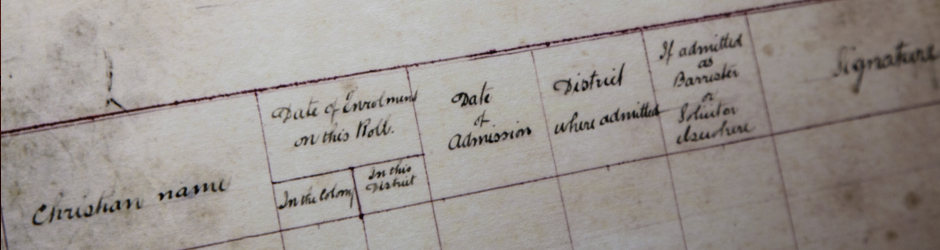 Christian name
Date of Enrolment
on this Roll.
In the Colony
In this
District
Date
of
Admission
District
where admitted
If admitted
as
Barrister
or
Solicitor
elsewhere
Signature